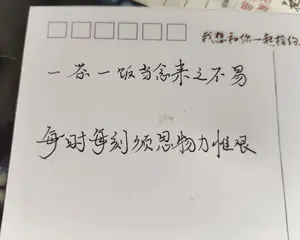 我想和你一起
一茶一饭当念来之不易
每时每刻须思物力惟艰